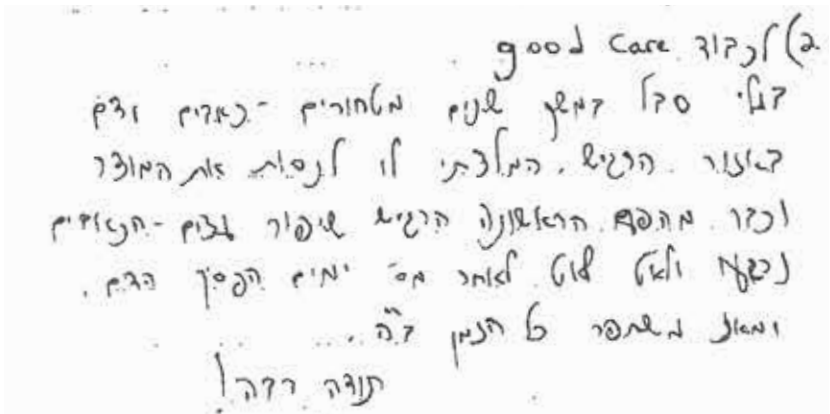 2) לכבוד good care
בעלי סבל במשך שנים מטחורים - כאבים ודם
באזור הרגיש. המלצתי לו לנסות את המוצר
וכבר מהפעם הראשונה הרגיש שיפור עצום - הכאבים
נרגעו ולאט לאט לאחר מס' ימים הפסק הדם.
ומאז משתפר כל הזמן ב"ה...
תודה רבה!